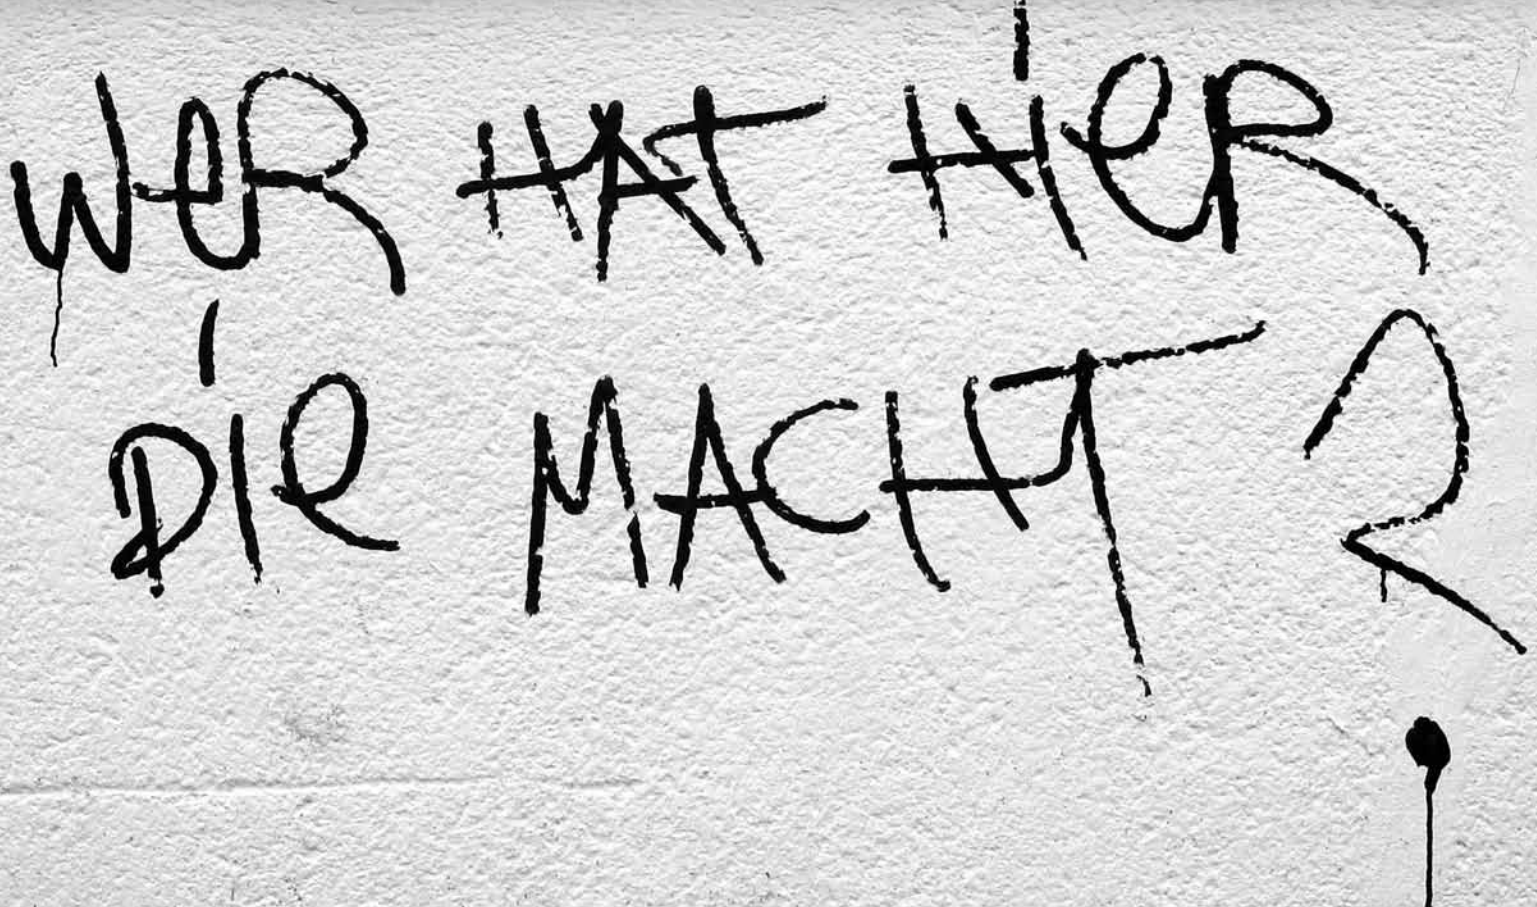 WeR HAT HieR
DIe MACHT?